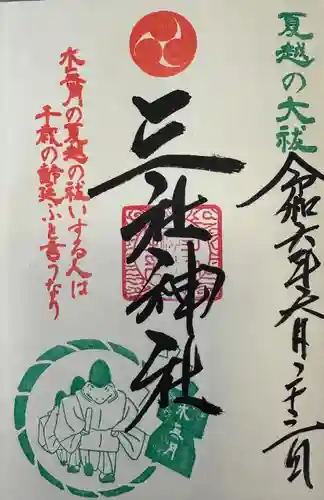 夏越の大祓
令和六年六月二十二日
三社神社
水無月の夏越の祓いする人は
千歳の齢延ふと言うなり
水無月